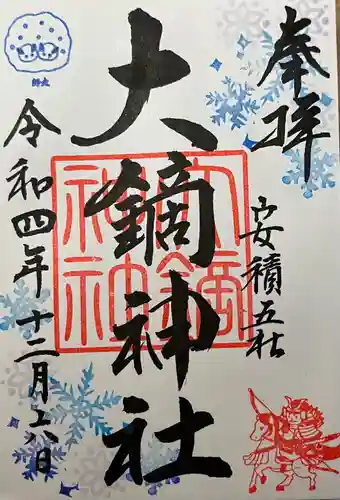 奉拝
安積五社
大鏑神社
大鏑神社
令和四年十二月二八日